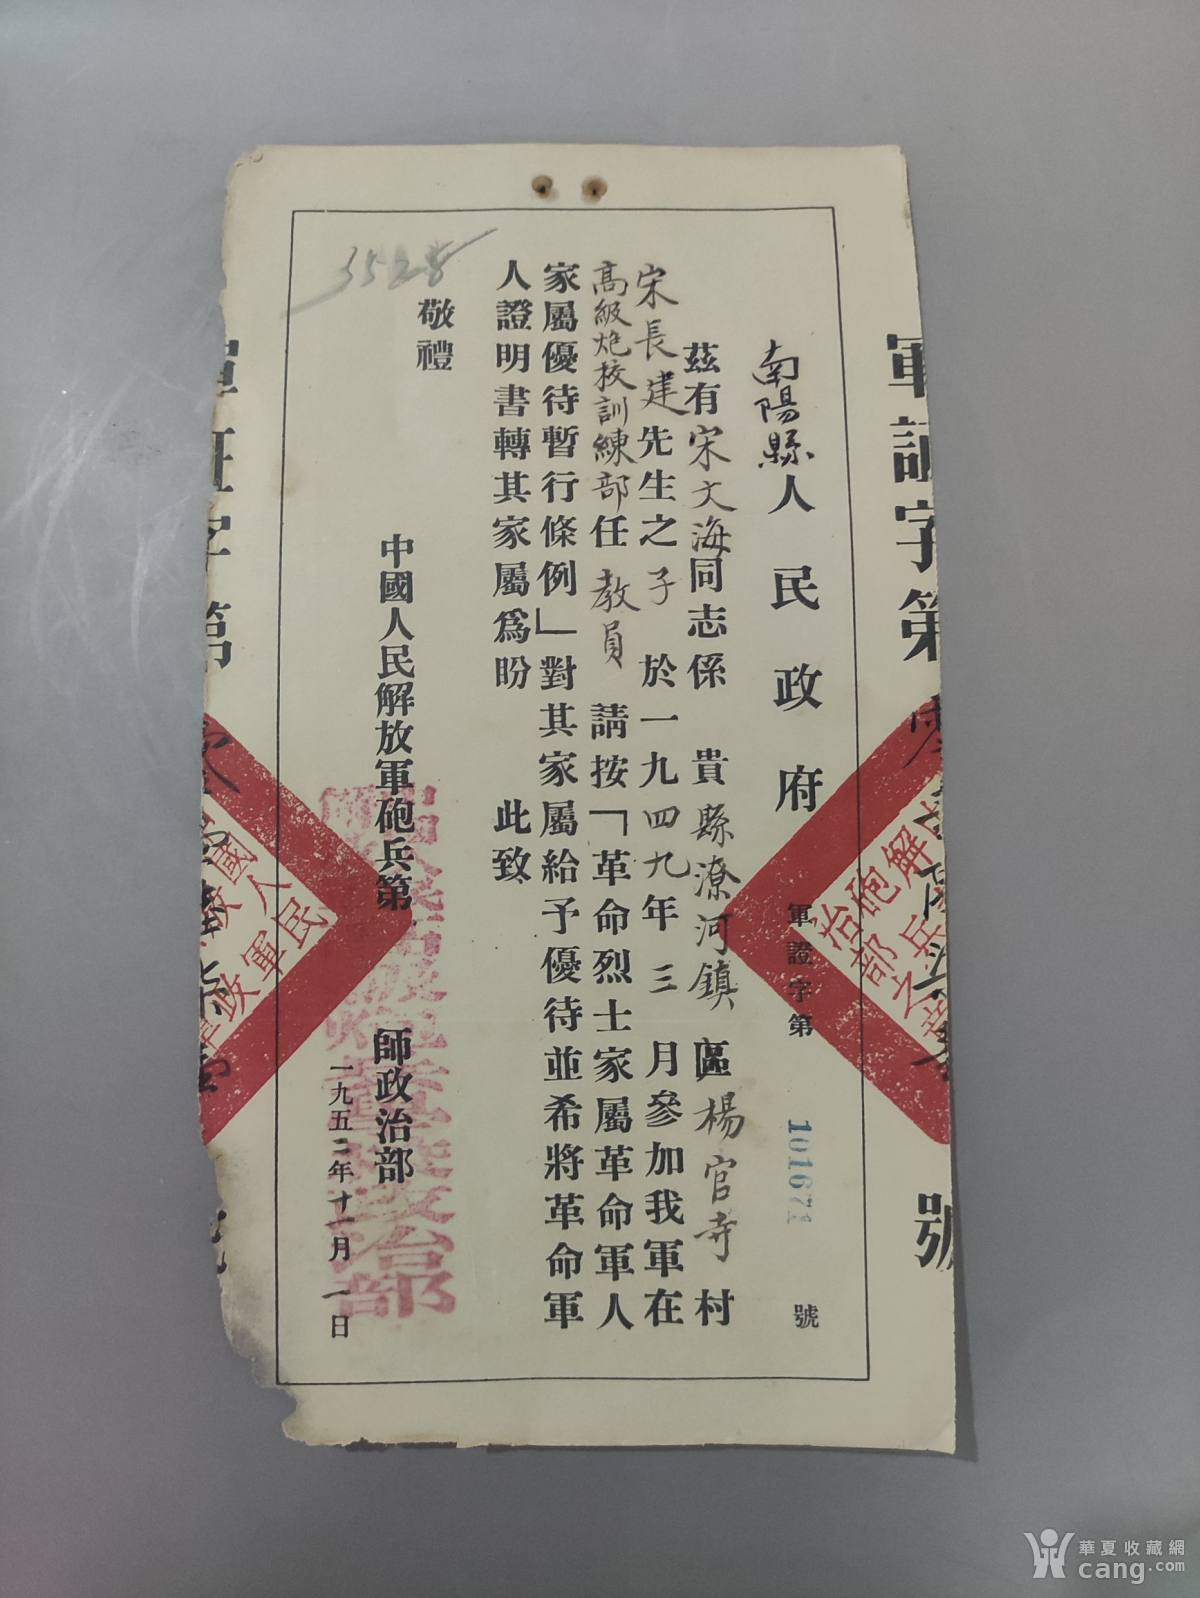 軍證字第
號
南陽縣人民政府
軍證字第 101671 號
茲有宋文海同志係 貴縣潦河鎮區楊官寺村
宋長建先生之子於一九四九年三月參加我軍在
高級炮校訓練部任教員 請按「革命烈士家屬革命軍人
家屬優待暫行條例」對其家屬給予優待並希將革命軍
人證明書轉其家屬為盼 此致
敬禮
中國人民解放軍砲兵第 師政治部
一九五二年十一月一日
3528
軍證字第
華夏收藏網
cang.com